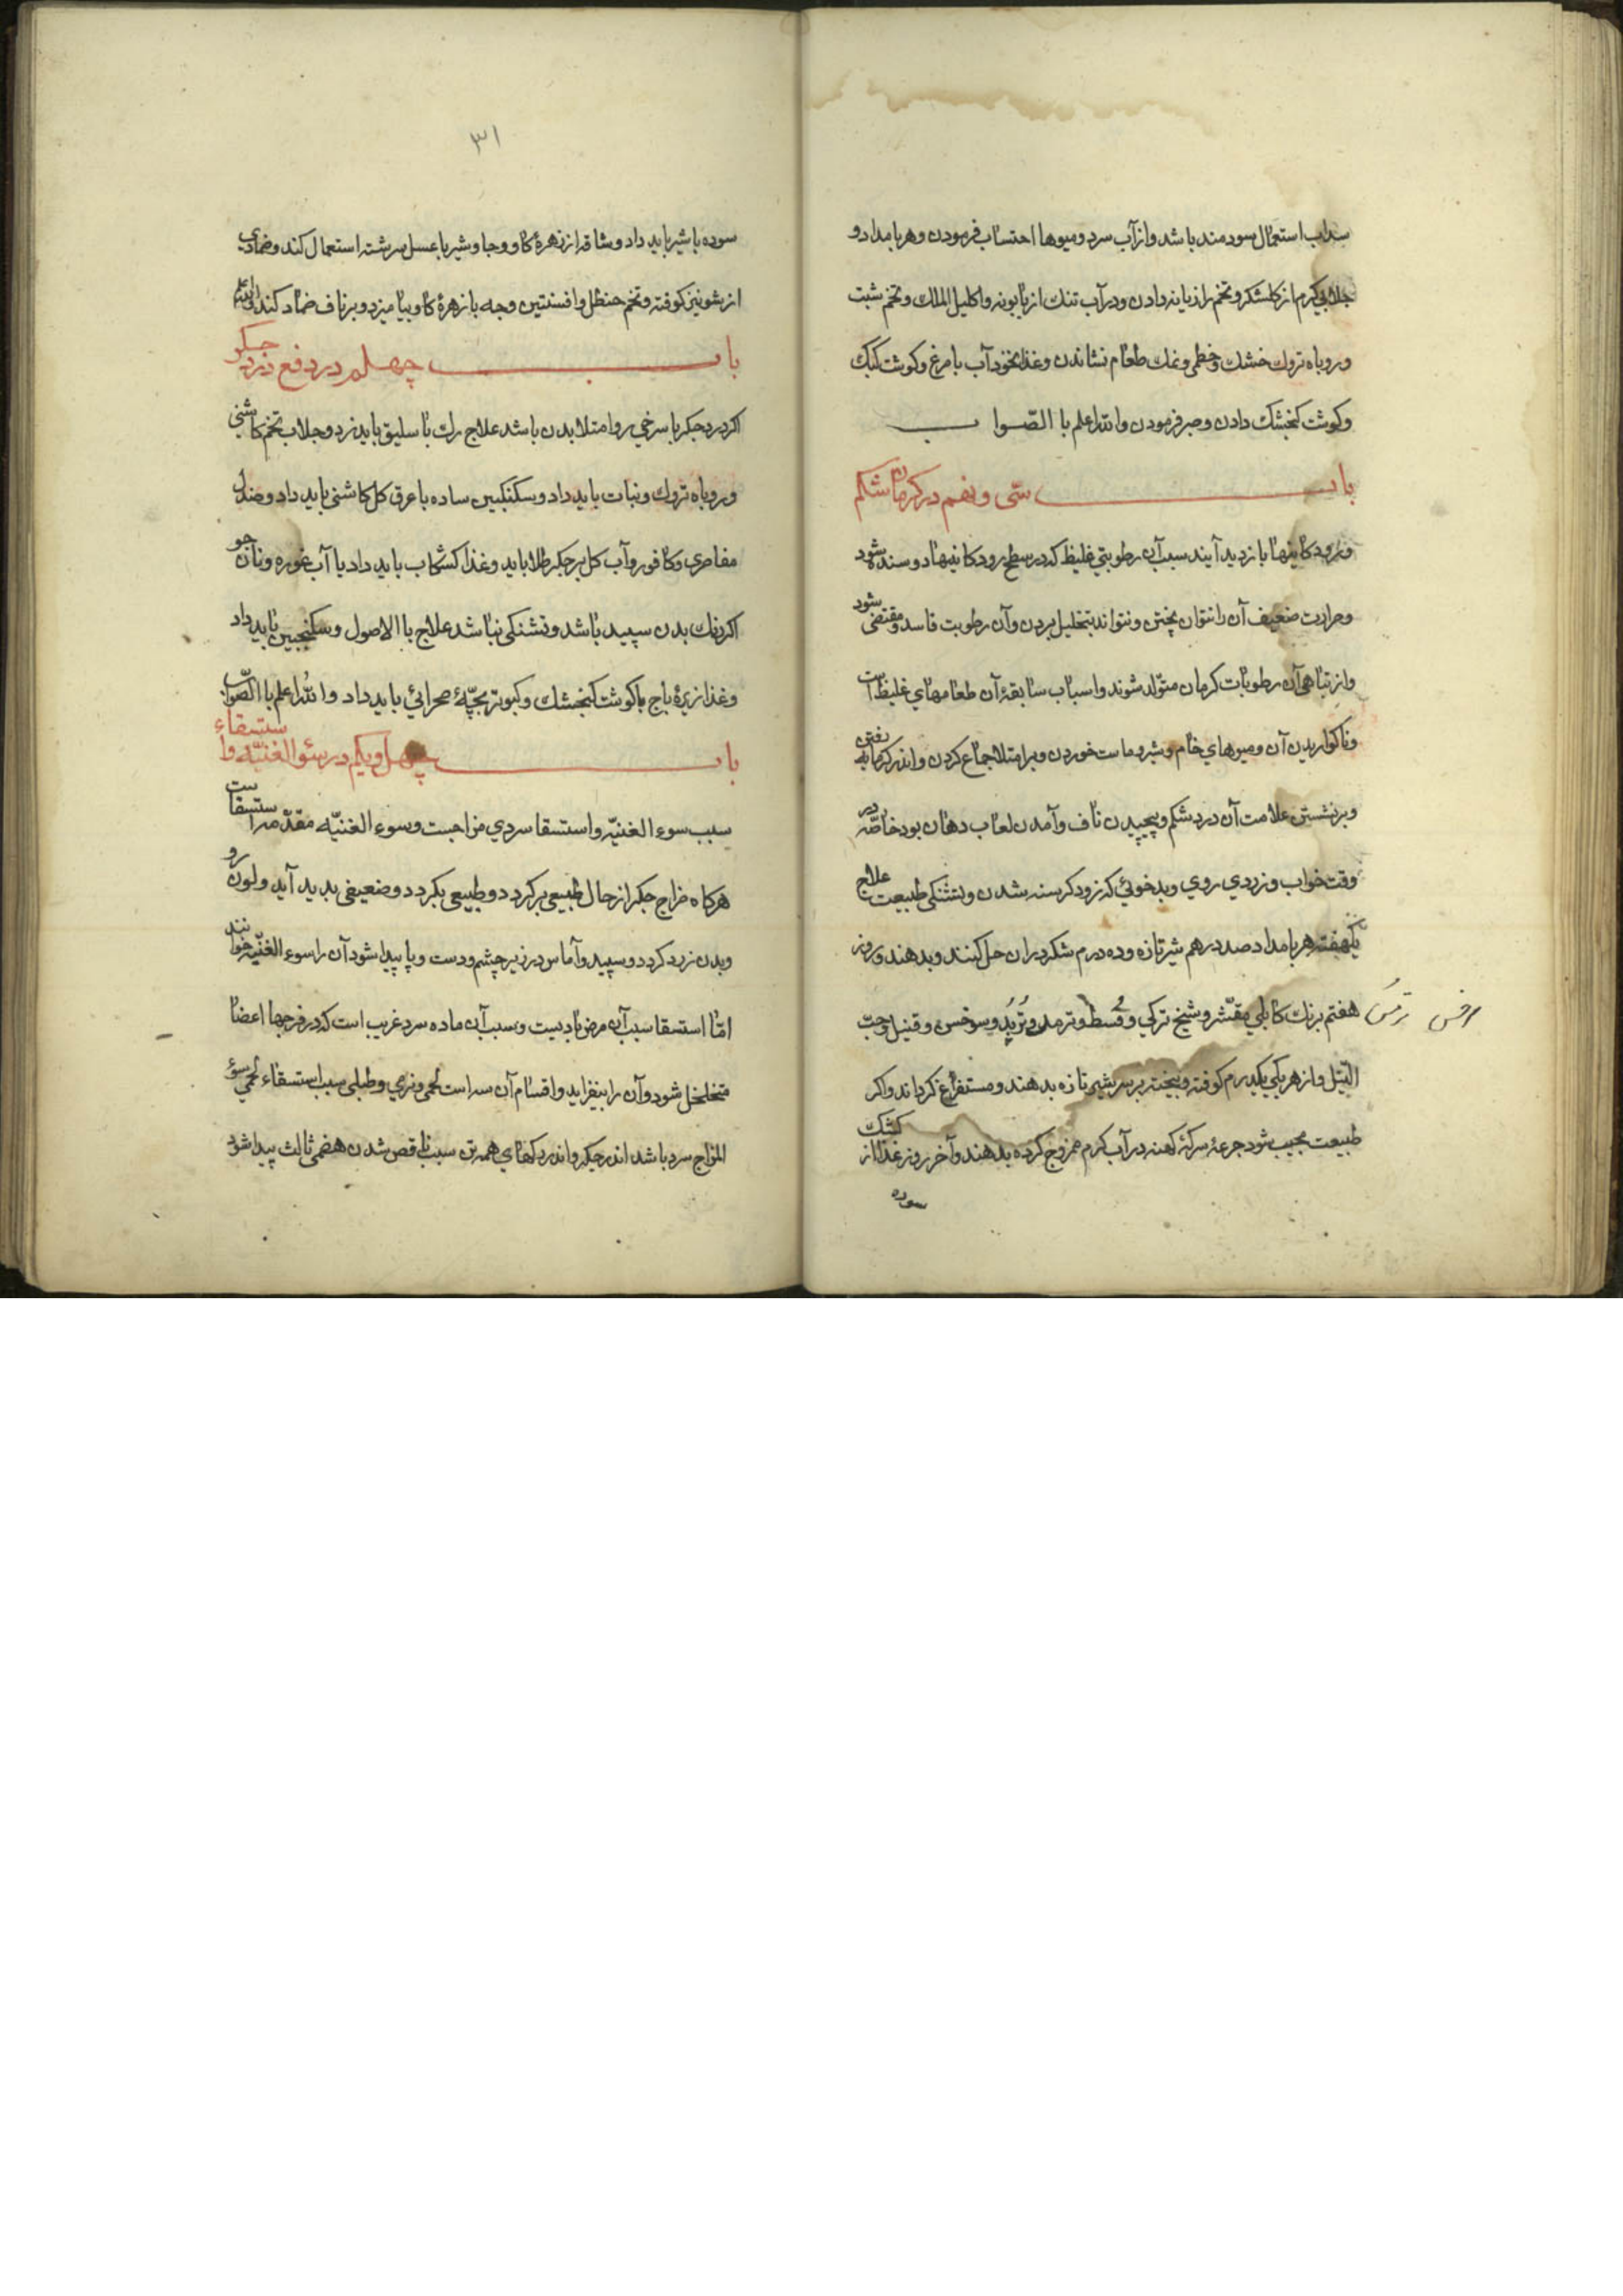 سداب استعمال سودمند باشد و از آب سرد و میوها احتساب فرمودن و هر بامداد و
جلابی کرم از کلشکر و تخم رازیانه دادن و در آب تنك از بابونه و اکلیل الملك و تخم شبت
و روباه تروك خشك و خطمی و نمك طعام نشاندن و غذا نخود آب با مرغ و کوشت کبك
و کوشت کنجشك دادن و صبر فرمودن والله اعلم با الصّواب
باب سی و نهم در کرمان شکم
آیند سبب آن رطوبتی غلیظ که در سطح رودکانیها دوسنده شود
و حرارت ضعیف آن را نتوان پختن و نتواند بتحلیل بردن و آن رطوبت فاسد و شود
و از تباهی آن رطوبات کرمان متولّد شوند و اسباب سابقهٔ آن طعامهای غلیظ است
و ناکواریدن آن و میوهای خام و شیر و ماست خوردن و بر امتلا جماع کردن و اندر کرمابه رفتن
و برنشستن علامت آن درد شکم و پیچیدن ناف و آمدن لعاب دهان بود خاصّه در
وقت خواب و زردی روی و بدخوئی که زود کرسنه شدن و بتشنکی طبیعت علاج
یکهفته هر بامداد صد درهم شیر تازه و ده درم شکر در ان حل کنند و بدهند و روز
هفتم برنك کابلی مقشّر و شیح ترکی و قسط و ترمس و تُربُد و سرخس و قنبیل و حبّ
ترمس
النّیل و از هر یکی یکدرم کوفته و بیخته بر سر شیر تازه بدهند و مستفرغ کرداند و اکر
طبیعت مجیب شود جرعهٔ سرکهٔ کهنه در آب کرم ممزوج کرده بدهند و آخر روز غذا از کشك
سوده
۳۱
سوده با شیر باید داد و شافه از زهرهٔ کاو و جاوشیر با عسل سرشته استعمال کند و ضمادی
از شونیز کوفته و تخم حنظل و افسنتین و جه با زهرهٔ کاو بیامیزد و بر ناف ضماد کند
باب چهلم در دفع درد جکر
اکر درد جکر با سرخی رو امتلا بدن باشد علاج رك باسلیق باید زد و جلاب تخم کاشنی
و روباه تروك و نبات باید داد و سکنکبین ساده با عرق کل کاشنی باید داد و صندل
مقاصری و کافور و آب کل بر جکر طلا باید و غذا کشکاب باید داد یا آب غوره و نان جو
اکر رنك بدن سپید باشد و تشنکی نباشد علاج با الاصول و سکنجبین باید داد
و غذا زیرهٔ باج با کوشت کنجشك و کبوتر بچّهٔ صحرائی باید داد والله اعلم با الصّواب
باب چهل و یکم در سئو الغنیّه و استسقاء
سبب سوء الغنیّه و استسقا سردی مزاجست و سوء الغنیّه مقدّمهٔ استسقاست
هرکاه مزاج جکر از حال طبیعی برکردد و طبیعی بکردد و ضعیفی بدید آید و لون رو
و بدن زرد کردد و سپید و آماس در زیر چشم و دست و پا پیدا شود آن را سوء الغنیّه خوانند
امّا استسقا سبب آن مرض بادیست و سبب آن ماده سرد غریب است که در فرجها اعضا
متخلخل شود و آن را بیفزاید و اقسام آن سه است لحمی و زقی و طبلی سبب استسقاء لحمی سوءُ
المزاج سرد باشد اندر جکر و اندر رکهای همه تن سبب ناقص شدن هضمی ثالث پیدا شود